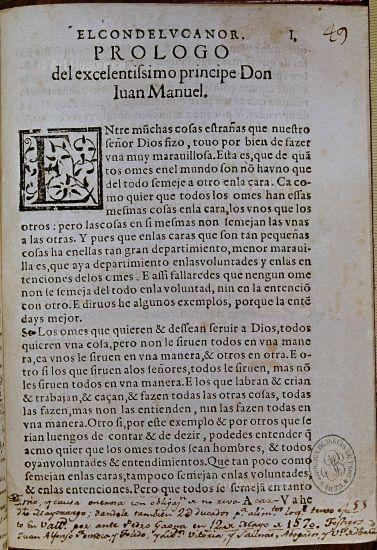 EL CONDE LVCANOR. I. 49
PROLOGO
del excelentissimo principe Don
Iuan Manuel.
ENtre muchas cosas estrañas que nuestro
señor Dios fizo, touo por bien de fazer
vna muy marauillosa. Esta es, que de quã
tos omes en el mundo son nõ ha vno que
del todo semeje a otro en la cara. Ca co-
mo quier que todos los omes han essas
mesmas cosas en la cara, los vnos que los
otros: pero las cosas en si mesmas non semejan las vnas
a las otras. Y pues que en las caras que son tan pequeñas
cosas ha en ellas tan gran departimiento, menor maraui-
lla es, que aya departimiento en las voluntades y enlas en
tenciones delos omes. E assi fallaredes que nengun ome
non se semeja del todo enla voluntad, nin en la entenciõ
con otro. E diruos he algunos exemplos, porque la entẽ
days mejor.
Los omes que quieren & dessean seruir a Dios, todos
quieren vna cosa, pero non le siruen todos en vna mane
ra, ca vnos le siruen en vna manera, & otros en otra. E o-
tro si los que siruen a los señores, todos le siruen, mas nõ
les siruen todos en vna manera. E los que labran & crian
& trabajan, & caçan, & fazen todas las otras cosas, todas
las fazen, mas non las entienden, nin las fazen todas en
vna manera. Otro si, por este exemplo & por otros que se
rian luengos de contar & de dezir, podedes entender q̃
acmo quier que los omes todos sean hombres, & todos
ayan voluntades & entendimientos. Que tan poco como
semejan en las caras, tampoco semejan enlas voluntades,
& enlas entenciones. Pero que todos se semejã en tanto